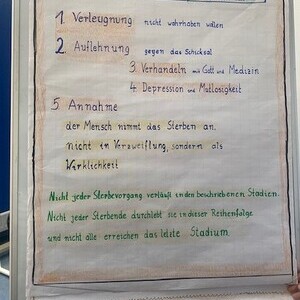 1. Verleugnung nicht wahrhaben wollen
2. Auflehnung gegen das Schicksal
3. Verhandeln mit Gott und Medizin
4. Depression und Mutlosigkeit
5. Annahme
der Mensch nimmt das Sterben an.
nicht in Verzweiflung, sondern als
Wirklichkeit
Nicht jeder Sterbevorgang verläuft in den beschriebenen Stadien.
Nicht jeder Sterbende durchlebt sie in dieser Reihenfolge
und nicht alle erreichen das letzte Stadium.